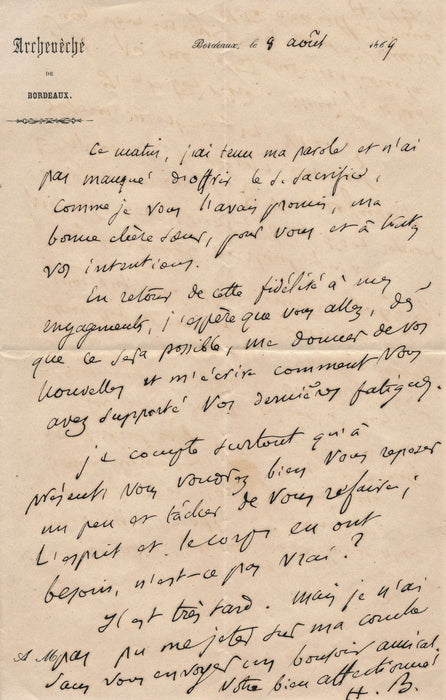 Archevêché
DE
BORDEAUX.
Bordeaux, le 8 août 1869
Ce matin, j'ai tenu ma parole et n'ai
pas manqué d'offrir le St. Sacrifice,
comme je vous l'avais promis, ma
bonne chère Sœur, pour vous et à toutes
vos intentions.
En retour de cette fidélité à mes
engagements, j'espère que vous allez, dès
que ce sera possible, me donner de vos
nouvelles et m'écrire comment vous
avez supporté vos dernières fatigues.
je compte surtout qu'à
présent vous voudrez bien vous reposer
un peu et tâcher de vous refaire ;
l'esprit et le corps en ont
besoin, n'est-ce pas vrai ?
Il est très tard. mais je n'ai
A M
pas pu me jeter sur ma couche
sans vous envoyer un bonsoir amical.
Votre bien affectionné.
H. B.